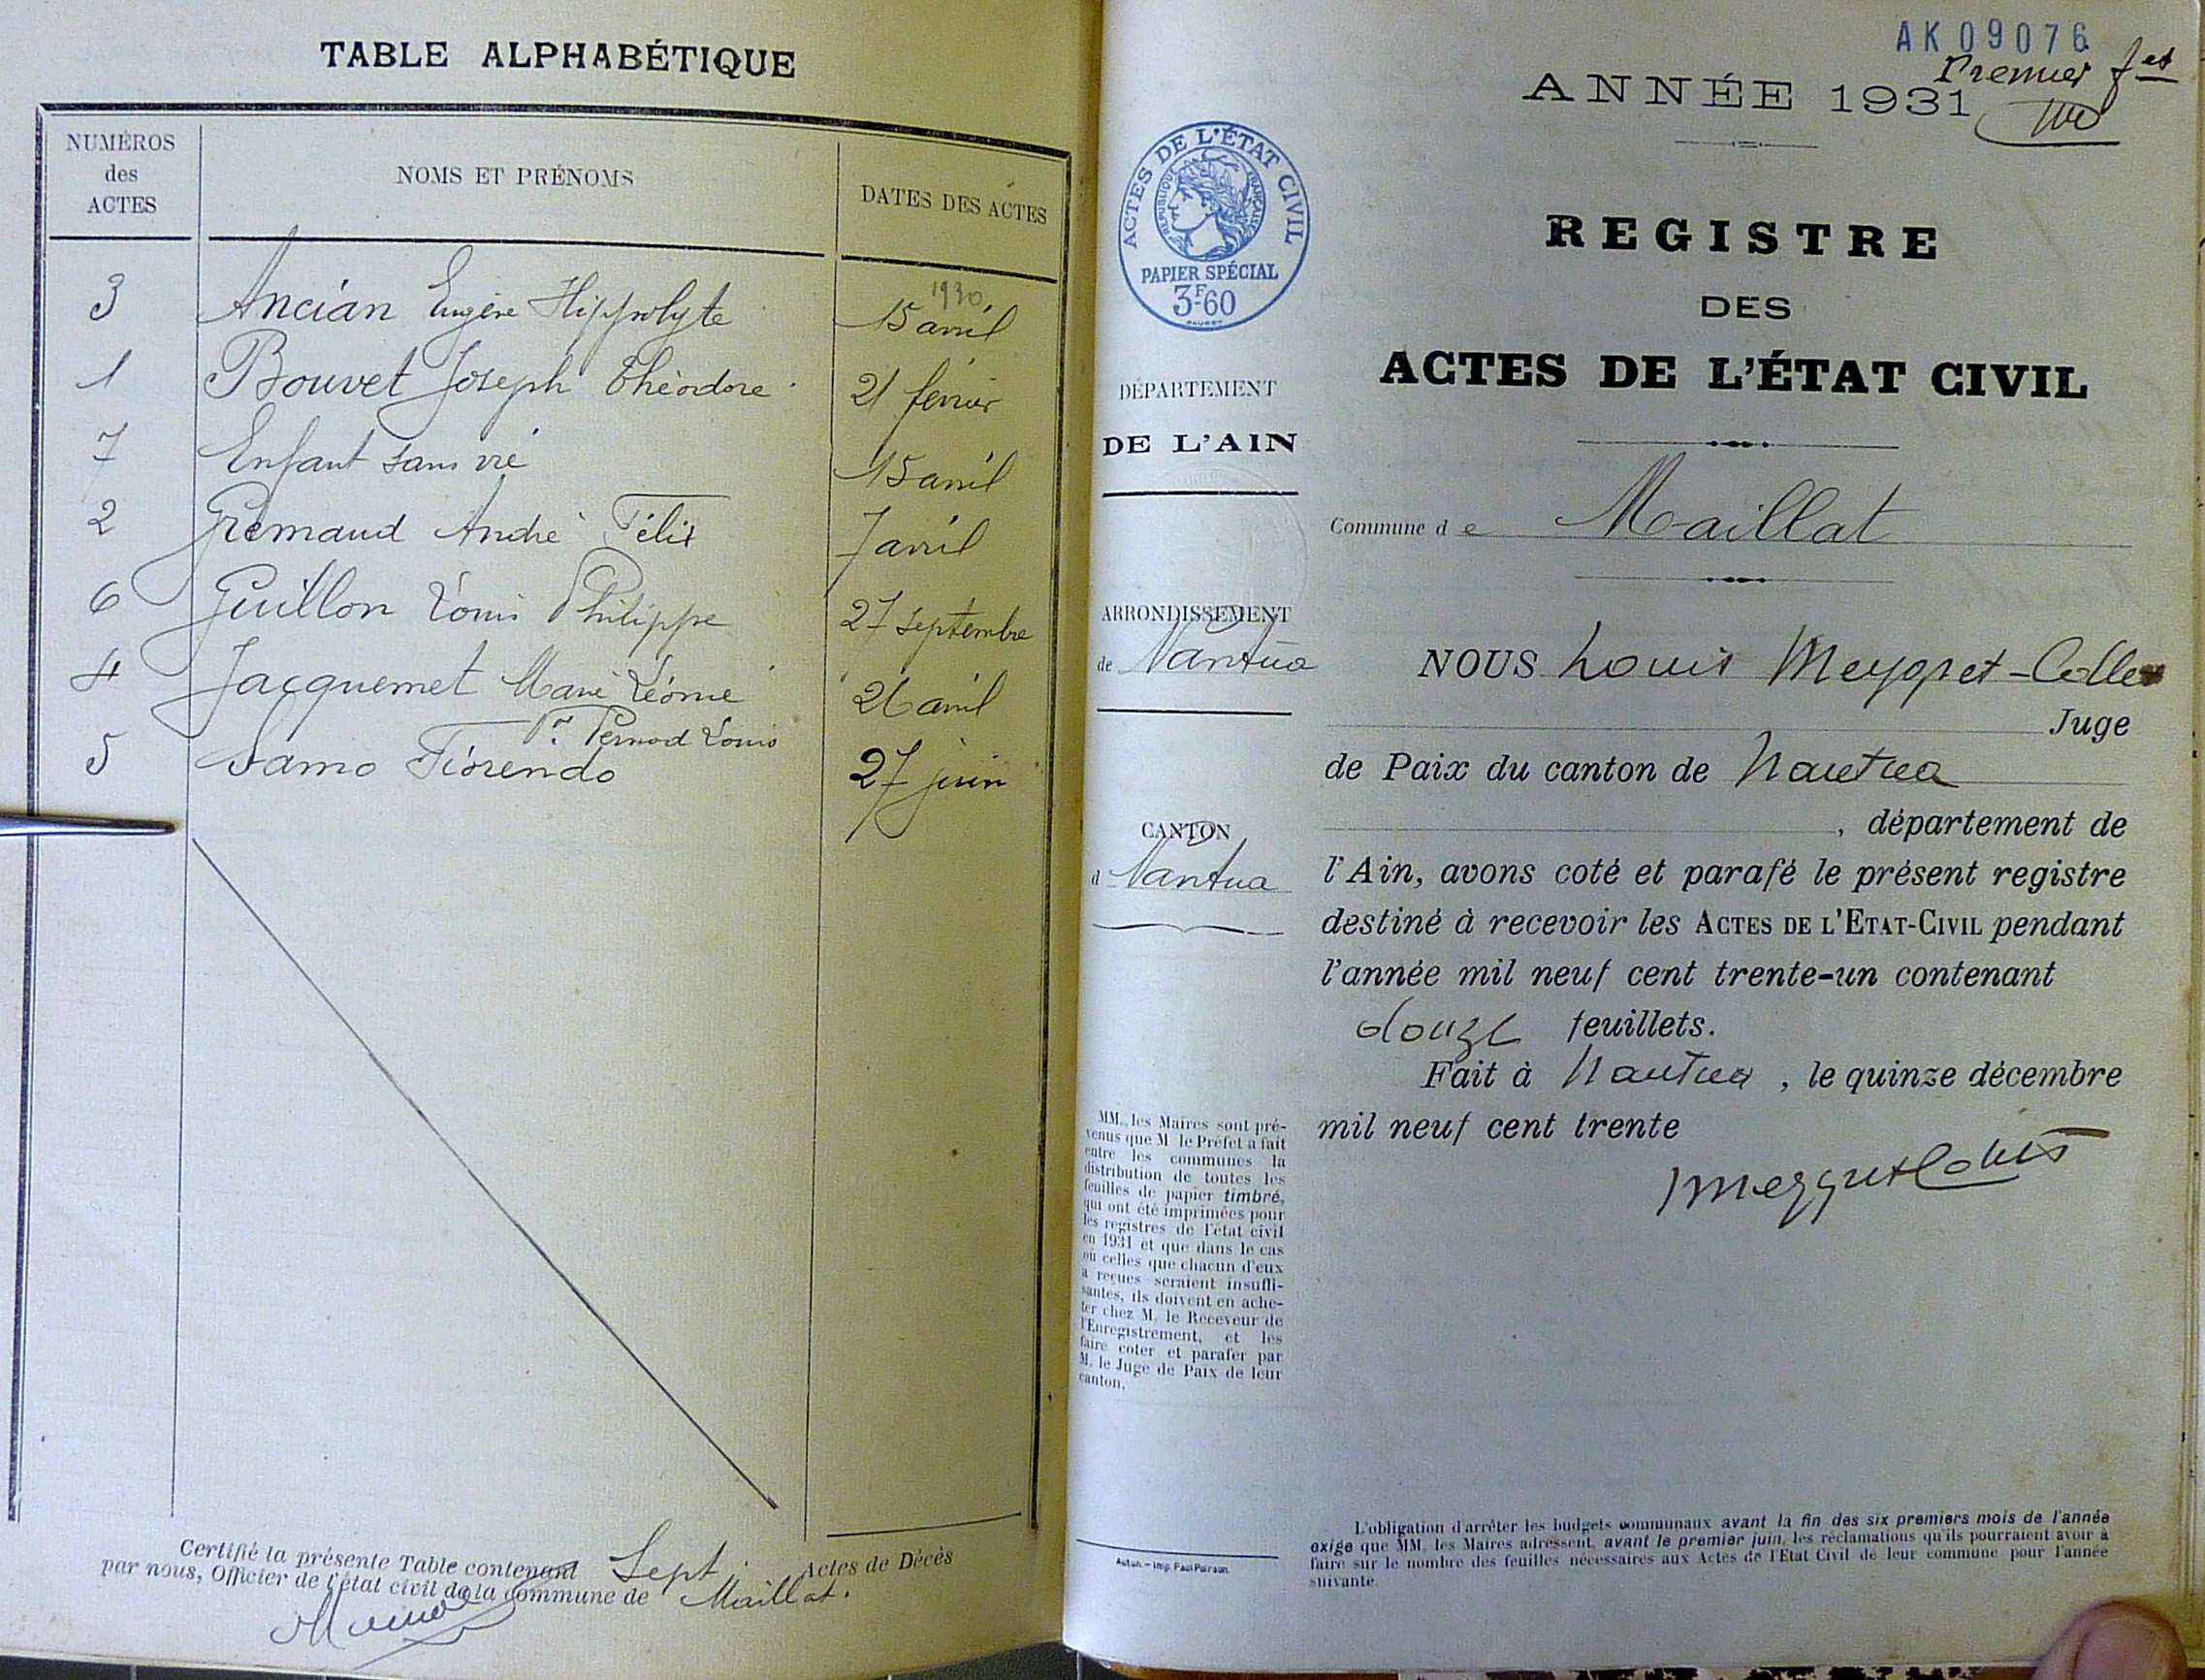 TABLE ALPHABÉTIQUE
NUMÉROS
des
ACTES
NOMS ET PRÉNOMS
DATES DES ACTES
1930
3 Ancian Eugène Hippolyte 15 avril
1 Bouvet Joseph Théodore 21 février
7 Enfant sans vie 15 avril
2 Gremaud André Félix 7 avril
6 Guillon Louis Philippe 27 septembre
4 Jacquemet Marie Léonie 26 avril
Vr Pernod Louis
5 Samo Fiorendo 27 juin
Certifié la présente Table contenant Sept Actes de Décès
par nous, Officier de l'état civil de la commune de Maillat.
AK 09076
Premier fet
ANNÉE 1931
ACTES DE L'ÉTAT CIVIL
RÉPUBLIQUE FRANÇAISE
PAPIER SPÉCIAL
3F-60
DÉPARTEMENT
DE L'AIN
ARRONDISSEMENT
de Nantua
CANTON
d Nantua
MM. les Maires sont pré-
venus que M. le Préfet a fait
entre les communes la
distribution de toutes les
feuilles de papier timbré,
qui ont été imprimées pour
les registres de l'état civil
en 1931 et que dans le cas
où celles que chacun d'eux
a reçues seraient insuffi-
santes, ils doivent en ache-
ter chez M. le Receveur de
l'Enregistrement, et les
faire coter et parafer par
M. le Juge de Paix de leur
canton.
Autun. — Imp. Paul Poirson.
REGISTRE
DES
ACTES DE L'ÉTAT CIVIL
Commune d e Maillat
NOUS Louis Meyqret-Collet
Juge
de Paix du canton de Nantua
, département de
l'Ain, avons coté et parafé le présent registre
destiné à recevoir les ACTES DE L'ETAT-CIVIL pendant
l'année mil neuf cent trente-un contenant
douze feuillets.
Fait à Nantua , le quinze décembre
mil neuf cent trente
L'obligation d'arrêter les budgets communaux avant la fin des six premiers mois de l'année
exige que MM. les Maires adressent, avant le premier juin, les réclamations qu'ils pourraient avoir à
faire sur le nombre des feuilles nécessaires aux Actes de l'Etat Civil de leur commune pour l'année
suivante.